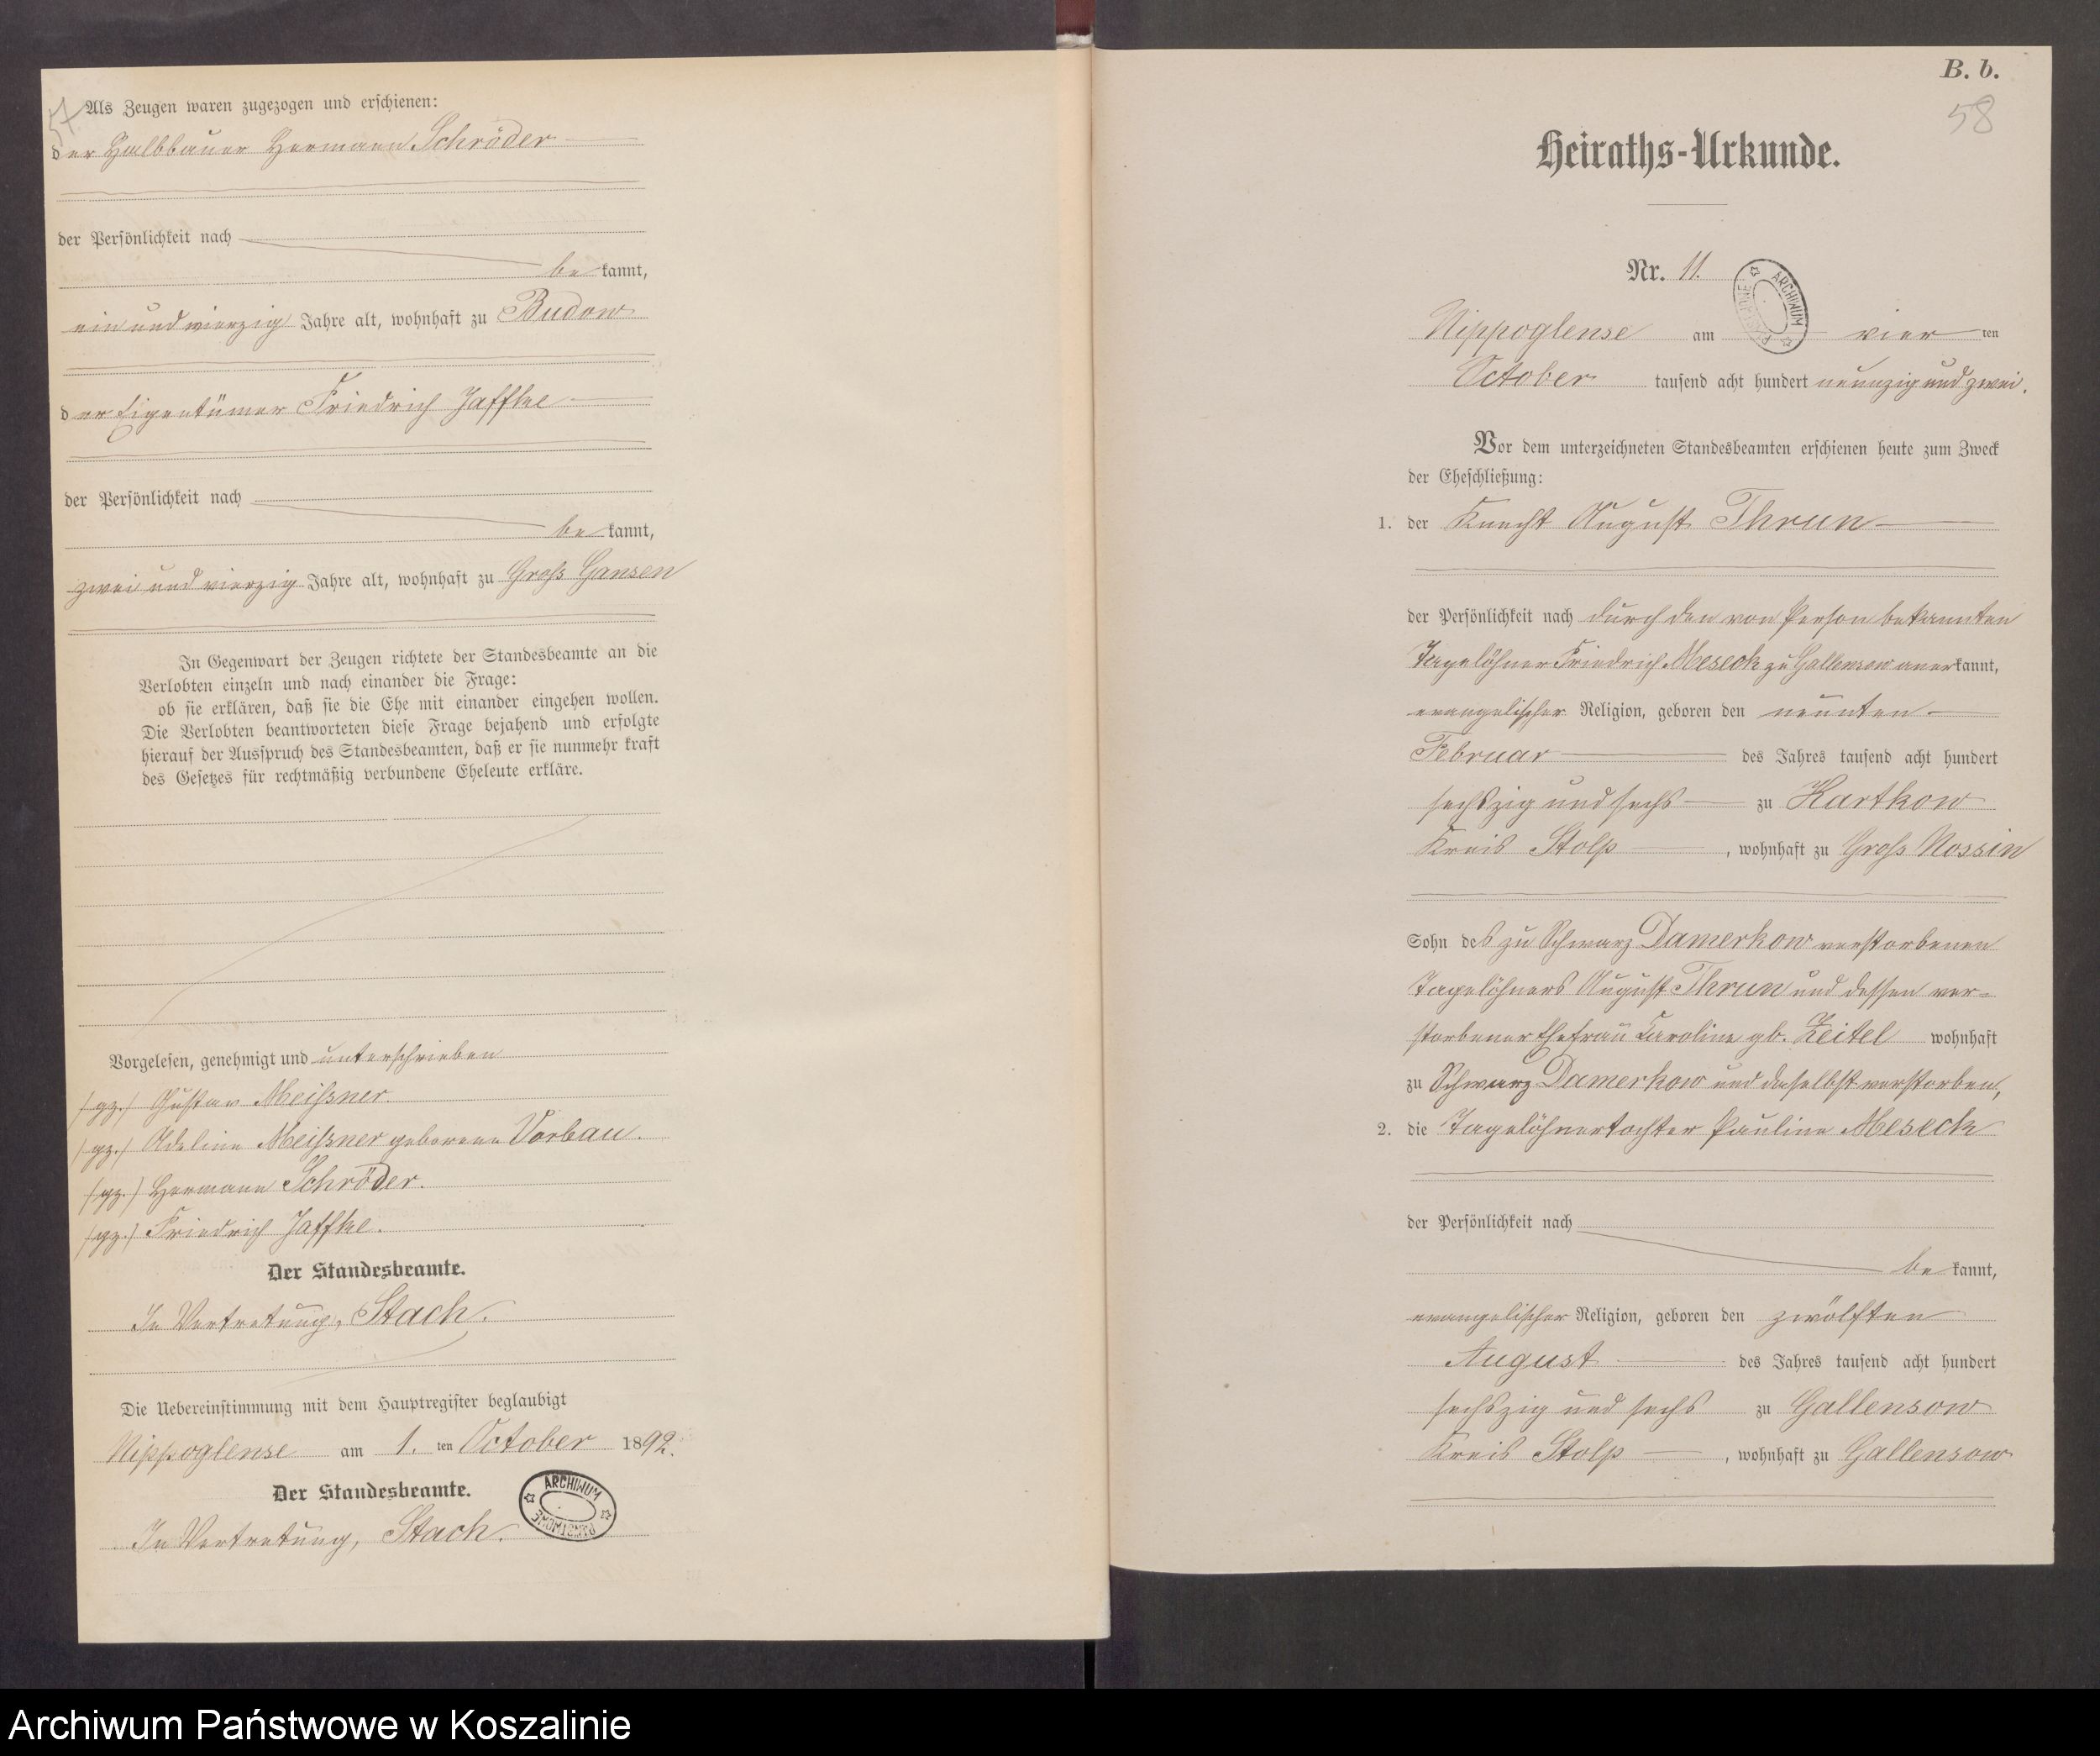 57
Als Zeugen waren zugezogen und erschienen:
der Halbbauer Hermann Schröder
der Persönlichkeit nach
be kannt,
ein und vierzig Jahre alt, wohnhaft zu Budow
der Eigentümer Friedrich Jaffke
der Persönlichkeit nach
be kannt,
zwei und vierzig Jahre alt, wohnhaft zu Groß Gansen
In Gegenwart der Zeugen richtete der Standesbeamte an die
Verlobten einzeln und nach einander die Frage:
ob sie erklären, daß sie die Ehe mit einander eingehen wollen.
Die Verlobten beantworteten diese Frage bejahend und erfolgte
hierauf der Ausspruch des Standesbeamten, daß er sie nunmehr kraft
des Gesetzes für rechtmäßig verbundene Eheleute erkläre.
Vorgelesen, genehmigt und unterschrieben
/gz./ Gustav Meißner.
/gz./ Adeline Meißner geborene Vorbau.
/gz./ Hermann Schröder.
/gz./ Friedrich Jaffke.
Der Standesbeamte.
In Vertretung, Stach.
Die Uebereinstimmung mit dem Hauptregister beglaubigt
Nippoglense am 1. ten October 1892.
Der Standesbeamte.
In Vertretung, Stach.
ARCHIWUM PAŃSTWOWE
B. b.
58
Heiraths-Urkunde.
Nr. 11.
ARCHIWUM PAŃSTWOWE
Nippoglense am vier ten
October tausend acht hundert neunzig und zwei.
Vor dem unterzeichneten Standesbeamten erschienen heute zum Zweck
der Eheschließung:
1. der Knecht August Thrun
der Persönlichkeit nach durch den von Person bekannten
Tagelöhner Friedrich Meseck zu Gallensow anerkannt,
evangelischer Religion, geboren den neunten
Februar des Jahres tausend acht hundert
sechszig und sechs zu Kartkow
Kreis Stolp, wohnhaft zu Groß Nossin
Sohn des zu Schwarz Damerkow verstorbenen
Tagelöhners August Thrun und dessen ver=
storbener Ehefrau Karoline gb. Zeitel wohnhaft
zu Schwarz Damerkow und daselbst verstorben,
2. die Tagelöhnertochter Pauline Meseck
der Persönlichkeit nach
be kannt,
evangelischer Religion, geboren den zwölften
August des Jahres tausend acht hundert
sechszig und sechs zu Gallensow
Kreis Stolp, wohnhaft zu Gallensow
Archiwum Państwowe w Koszalinie